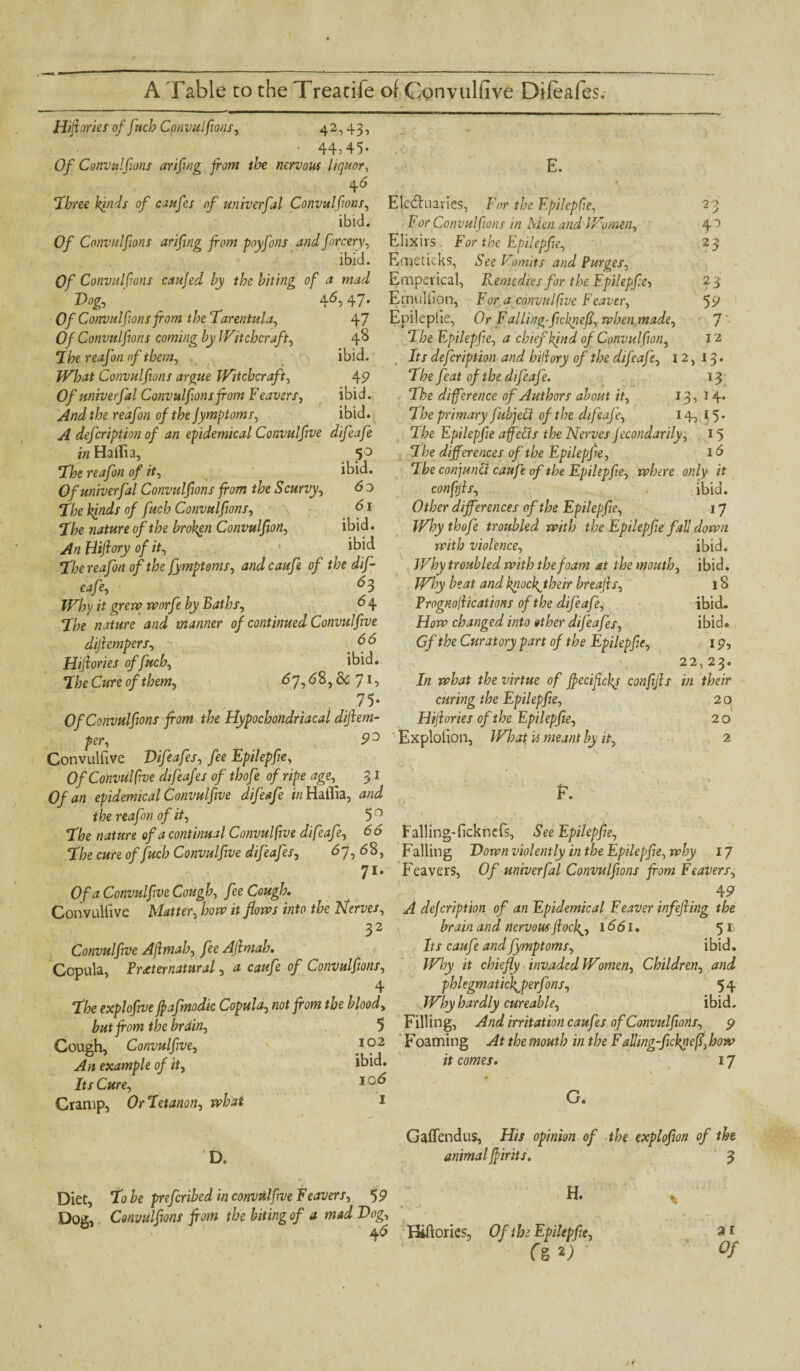 A Table to the Treatiſe of Convulſive Diſeaſes.
Hiſtories of ſuch Convulſions, 42, 43,
44, 45.
Of Convulſions ariſing from the nervous liquor,
46
Three kinds of cauſes of univerſal Convulſions,
ibid.
Of Convulſions ariſing from poyſons and ſorcery,
ibid.
Of Convulſions cauſed by the biting of a mad
Dog, 46, 47.
Of Convulſions from the Tarentula, 47
Of Convulſions coming by Witchcraft, 48
The reaſon of them, ibid.
What Convulſions argue Witchcraft, 49
Of univerſal Convulſions from Feavers, ibid.
And the reaſon of the ſymptoms, ibid.
A deſcription of an epidemical Convulſive diſeaſe
in Haſſia, 50
The reaſon of it, ibid.
Of univerſal Convulſions from the Scurvy, 60
The kinds of ſuch Convulſions, 61
The nature of the broken Convulſion, ibid.
An Hiſtory of it, ibid
The reaſon of the ſymptoms, and cauſe of the diſ-
eaſe, 63
Why it grew worſe by Baths, 64
The nature and manner of continued Convulſive
diſtempers, 66
Hiſtories of ſuch, ibid.
The Cure of them, 67, 68, & 71,
75.
Of Convulſions from the Hypochondriacal diſtem-
per, 90
Convulſive Diſeaſes, ſee Epilepſie,
Of Convulſive diſeaſes of thoſe of ripe age, 31
Of an epidemical Convulſive diſeaſe in Haſſia, and
the reaſon of it, 50
The nature of a continual Convulſive diſeaſe, 66
The cure of ſuch Convulſive diſeaſes, 67, 68,
71.
Of a Convulſive Cough, ſee Cough.
Convulſive Matter, how it flows into the Nerves,
32
Convulſive Aſtmah, ſee Aſtmah.
Copula, Præternatural, a cauſe of Convulſions,
4
The exploſive ſpaſmodic Copula, not from the blood,
but from the brain, 5
Cough, Convulſive, 102
An example of it, ibid.
Its Cure, 106
Cramp, Or Tetanon, what 1
D.
Diet, To be preſcribed in convulſive Feavers, 59
Dog, Convulſions from the biting of a mad Dog,
46
E.
Electuaries, For the Epilepſie, 23
For Convulſions in Men and Women, 40
Elixirs. For the Epilepſie, 23
Emeticks, See Vomits and Purges,
Emperical, Remedies for the Epilepſie, 23
Emulſion, For a convulſive Feaver, 59
Epilepſie, Or Falling-ſickneſs, when made, 7
The Epilepſie, a chief kind of Convulſion, 12
Its deſcription and hiſtory of the diſeaſe, 12, 13.
The ſeat of the diſeaſe. 13
The difference of Authors about it, 13, 14.
The primary ſubject of the diſeaſe, 14, 15.
The Epilepſie affects the Nerves ſecondarily, 15
The differences of the Epilepſie, 16
The conjunct cauſe of the Epilepſie, where only it
conſiſts, ibid.
Other differences of the Epilepſie, 17
Why thoſe troubled with the Epilepſie fall down
with violence, ibid.
Why troubled with the foam at the mouth, ibid.
Why beat and knock their breaſts, 18
Prognoſtications of the diſeaſe, ibid.
How changed into other diſeaſes, ibid.
Of the Curatory part of the Epilepſie, 19,
22, 23.
In what the virtue of ſpecificks conſiſts in their
curing the Epilepſie, 20
Hiſtories of the Epilepſie, 20
Exploſion, What is meant by it, 2
F.
Falling-ſickneſs, See Epilepſie,
Falling Down violently in the Epilepſie, why 17
Feavers, Of univerſal Convulſions from Feavers,
49
A deſcription of an Epidemical Feaver infeſting the
brain and nervous ſtock, 1661. 51
Its cauſe and ſymptoms, ibid.
Why it chiefly invaded Women, Children, and
phlegmatick perſons, 54
Why hardly cureable, ibid.
Filling, And irritation cauſes of Convulſions, 9
Foaming At the mouth in the Falling-ſickneſs, how
it comes. 17
G.
Gaſſendus, His opinion of the exploſion of the
animal ſpirits. 3
H.
Hiſtories, Of the Epilepſie, 21
(g 2) Of